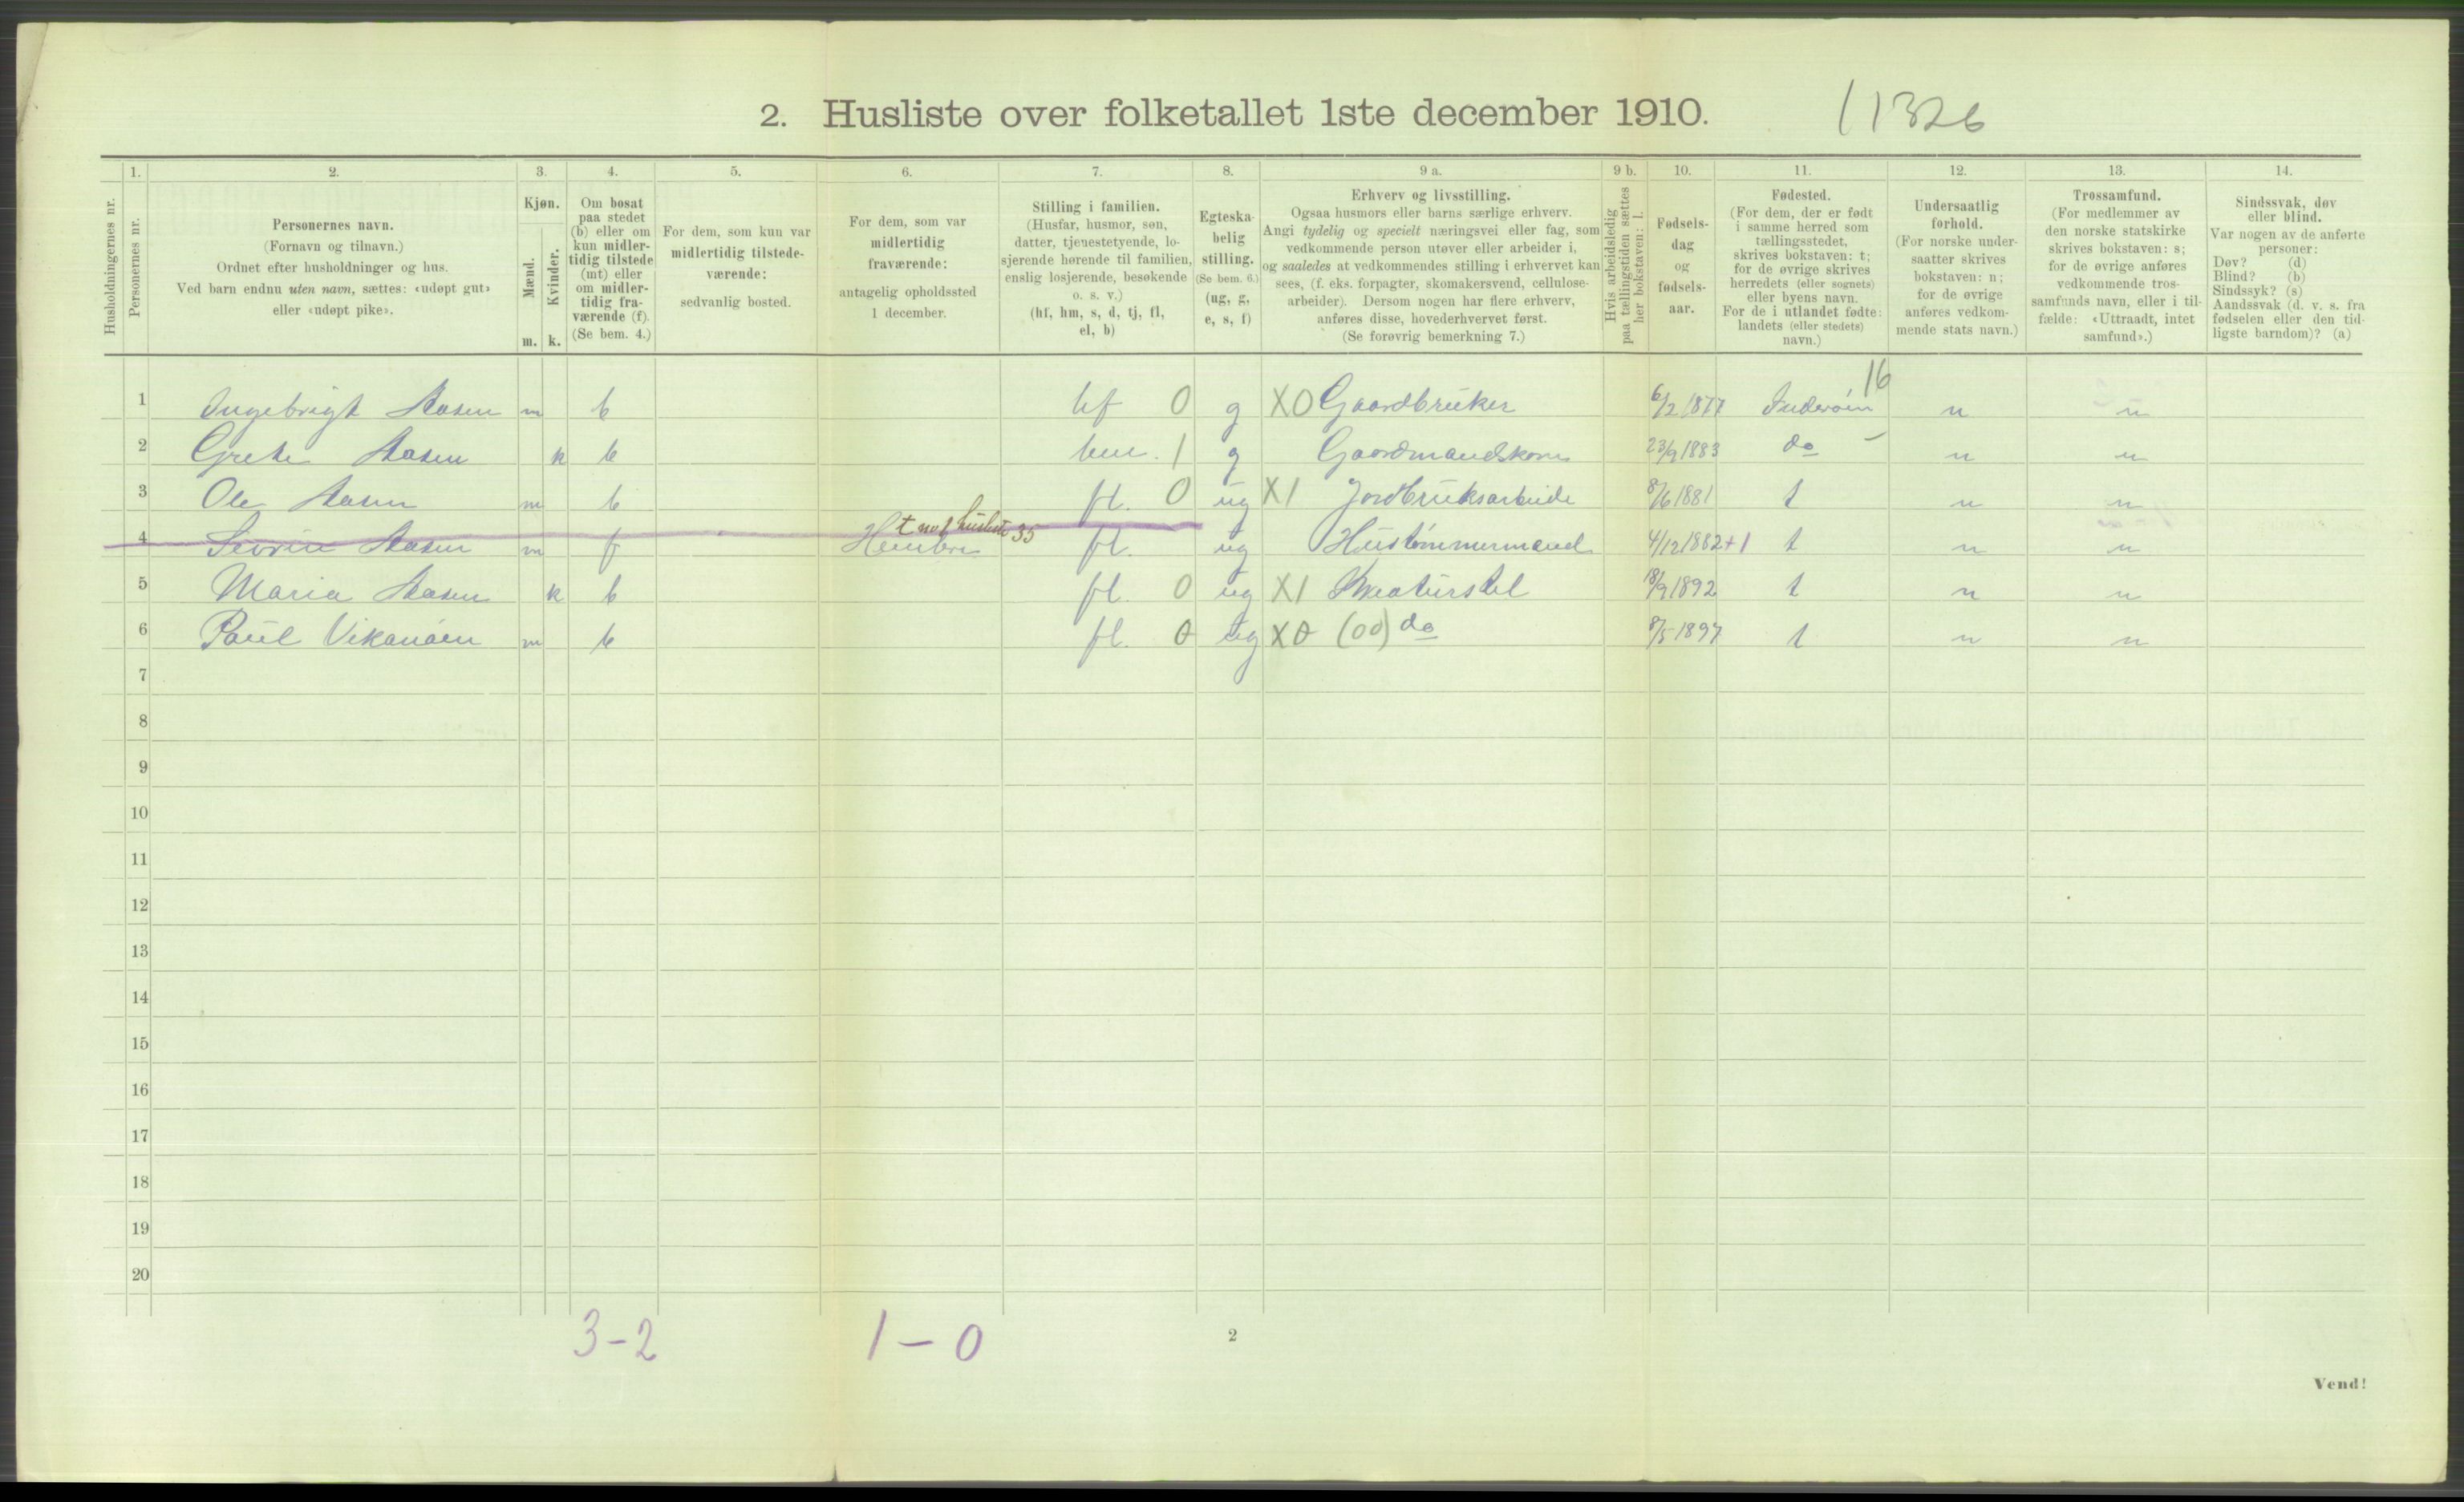 2. Husliste over folketallet 1ste december 1910.
11326
Husholdningernes nr.
1.
Personernes nr.
2.
Personernes navn.
(Fornavn og tilnavn.)
Ordnet efter husholdninger og hus.
Ved barn endnu uten navn, sættes: «udøpt gut»
eller «udøpt pike».
3.
Kjøn.
Mænd.
Kvinder.
m. k.
4.
Om bosat
paa stedet
(b) eller om
kun midler-
tidig tilstede
(mt) eller
om midler-
tidig fra-
værende (f).
(Se bem. 4.)
5.
For dem, som kun var
midlertidig tilstede-
værende:
sedvanlig bosted.
6.
For dem, som var
midlertidig
fraværende:
antagelig opholdssted
1 december.
7.
Stilling i familien.
(Husfar, husmor, søn,
datter, tjenestetyende, lo-
sjerende hørende til familien,
enslig losjerende, besøkende
o. s. v.)
(hf, hm, s, d, tj, fl,
el, b)
8.
Egteska-
belig
stilling.
(Se bem. 6.)
(ug, g,
e, s, f)
9 a.
Erhverv og livsstilling.
Ogsaa husmors eller barns særlige erhverv.
Angi tydelig og specielt næringsvei eller fag, som
vedkommende person utøver eller arbeider i,
og saaledes at vedkommendes stilling i erhvervet kan
sees, (f. eks. forpagter, skomakersvend, cellulose-
arbeider). Dersom nogen har flere erhverv,
anføres disse, hovederhvervet først.
(Se forøvrig bemerkning 7.)
9 b.
Hvis arbeidsledig
paa tællingstiden sættes
her bokstaven: l.
10.
Fødsels-
dag
og
fødsels-
aar.
11.
Fødested.
(For dem, der er født
i samme herred som
tællingsstedet,
skrives bokstaven: t;
for de øvrige skrives
herredets (eller sognets)
eller byens navn.
For de i utlandet fødte:
landets (eller stedets)
navn.)
12.
Undersaatlig
forhold.
(For norske under-
saatter skrives
bokstaven: n;
for de øvrige
anføres vedkom-
mende stats navn.)
13.
Trossamfund.
(For medlemmer av
den norske statskirke
skrives bokstaven: s;
for de øvrige anføres
vedkommende tros-
samfunds navn, eller i til-
fælde: «Uttraadt, intet
samfund».)
14.
Sindssvak, døv
eller blind.
Var nogen av de anførte
personer:
Døv? (d)
Blind? (b)
Sindssyk? (s)
Aandssvak (d. v. s. fra
fødselen eller den tid-
ligste barndom)? (a)
16
1 Ingebrigt Aasen m b hf 0 g X0 Gaardbruker 6/2 1877 Inderøen n n
2 Grete Aasen k b hm. 1 g Gaardmandskone 23/9 1883 do - n n
3 Ole Aasen m b fl. 0 ug X1 Jordbruksarbeide 8/6 1881 t n n
t no 1 husliste 35
4 Aasen m f fl. ug Hustømmermand 4/12 1882 +1 t n n
5 Maria Aasen k b fl. 0 ug X1 Kreaturstel 18/9 1892 t n n
6 Paul Vikanåen m b fl. 0 ug X0 (00) do 8/5 1897 t n n
7
8
9
10
11
12
13
14
15
16
17
18
19
20
3-2 1-0
2
Vend!